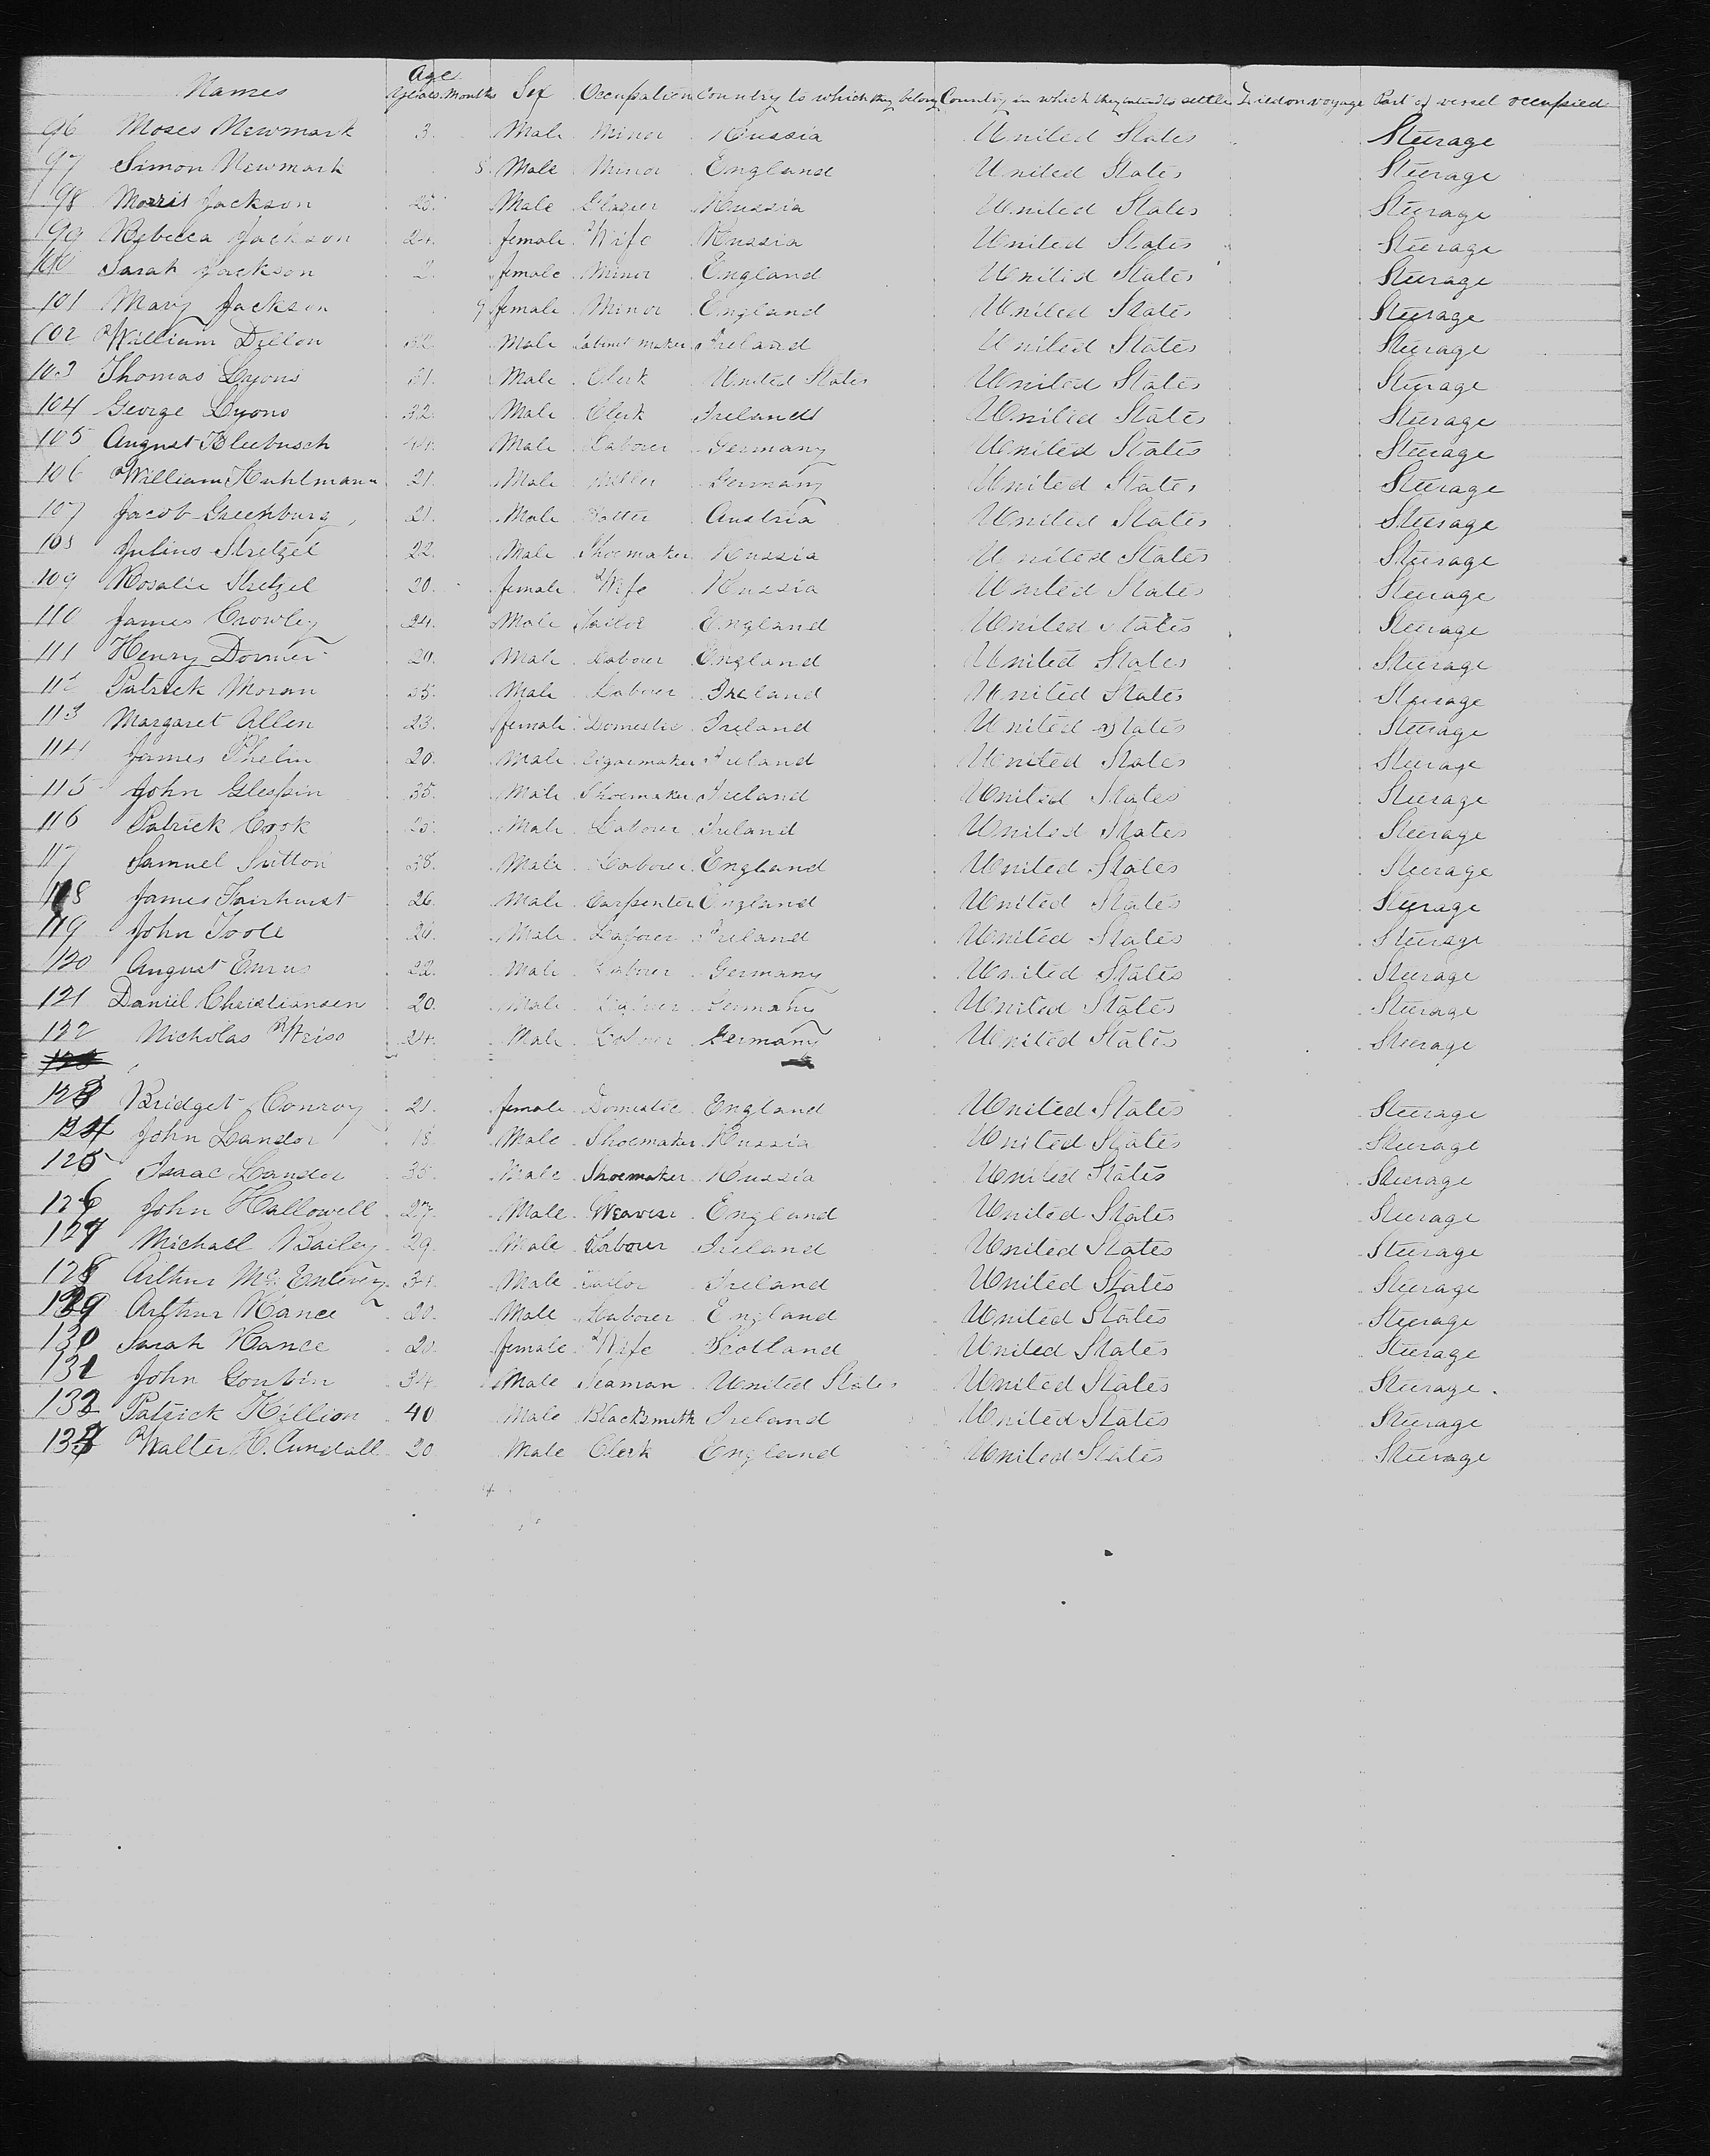 Age
Names Years Months Sex Occupation Country to which they belong Country in which they intend to settle Died on voyage Part of vessel occupied
96 Moses Newmark 3 Male Minor Russia United States Steerage
97 Simon Newmark 8 Male Minor England United States Steerage
98 Morris Jackson Male Glazier Russia United States Steerage
99 Rebecca Jackson 24 female Wife Russia United States Steerage
100 Sarah Jackson 2 female Minor England United States Steerage
101 Mary Jackson 9 female Minor England United States Steerage
102 William Dillon 32 Male Cabinet maker Ireland United States Steerage
103 Thomas Lyons Male Clerk United States United States Steerage
104 George Lyons 32 Male Clerk Ireland United States Steerage
105 August Kleebusch Male Labourer Germany United States Steerage
106 William Kuhlmann 21 Male Miller Germany United States Steerage
107 Jacob Greenburg 21 Male Austria United States Steerage
108 Julius Stretzel 22 Male Shoemaker Russia United States Steerage
109 Rosalie Stretzel 20 female Wife Russia United States Steerage
110 James Crowley 24 Male Tailor England United States Steerage
111 Henry Dormer 20 Male Labourer England United States Steerage
112 Patrick Moran Male Labourer Ireland United States Steerage
113 Margaret Allen 23 female Domestic Ireland United States Steerage
114 James Phelin 20 Male Cigarmaker Ireland United States Steerage
115 John Glespin 35 Male Shoemaker Ireland United States Steerage
116 Patrick Cook 25 Male Labourer Ireland United States Steerage
117 Samuel Sutton 38 Male Labourer England United States Steerage
118 James Fairhurst 26 Male Carpenter England United States Steerage
119 John Toole Male Labourer Ireland United States Steerage
120 August 22 Male Labourer Germany United States Steerage
121 Daniel Christiansen 20 Male Labourer Germany United States Steerage
122 Nicholas Weiss 24 Male Labourer Germany United States Steerage
123 Bridget Conroy 21 female Domestic England United States Steerage
124 John Landor 18 Male Shoemaker Russia United States Steerage
125 Isaac Lander 35 Male Shoemaker Russia United States Steerage
126 John Hallowell 27 Male Weaver England United States Steerage
127 Michael Bailey 29 Male Labourer Ireland United States Steerage
128 Arthur Male Tailor Ireland United States Steerage
129 Arthur Rance 20 Male Labourer England United States Steerage
130 Sarah Rance 20 female Wife Scotland United States Steerage
131 John Gorbin 34 Male Seaman United States United States Steerage
132 Patrick Killion 40 Male Blacksmith Ireland United States Steerage
133 Walter H. Cundall 20 Male Clerk England United States Steerage